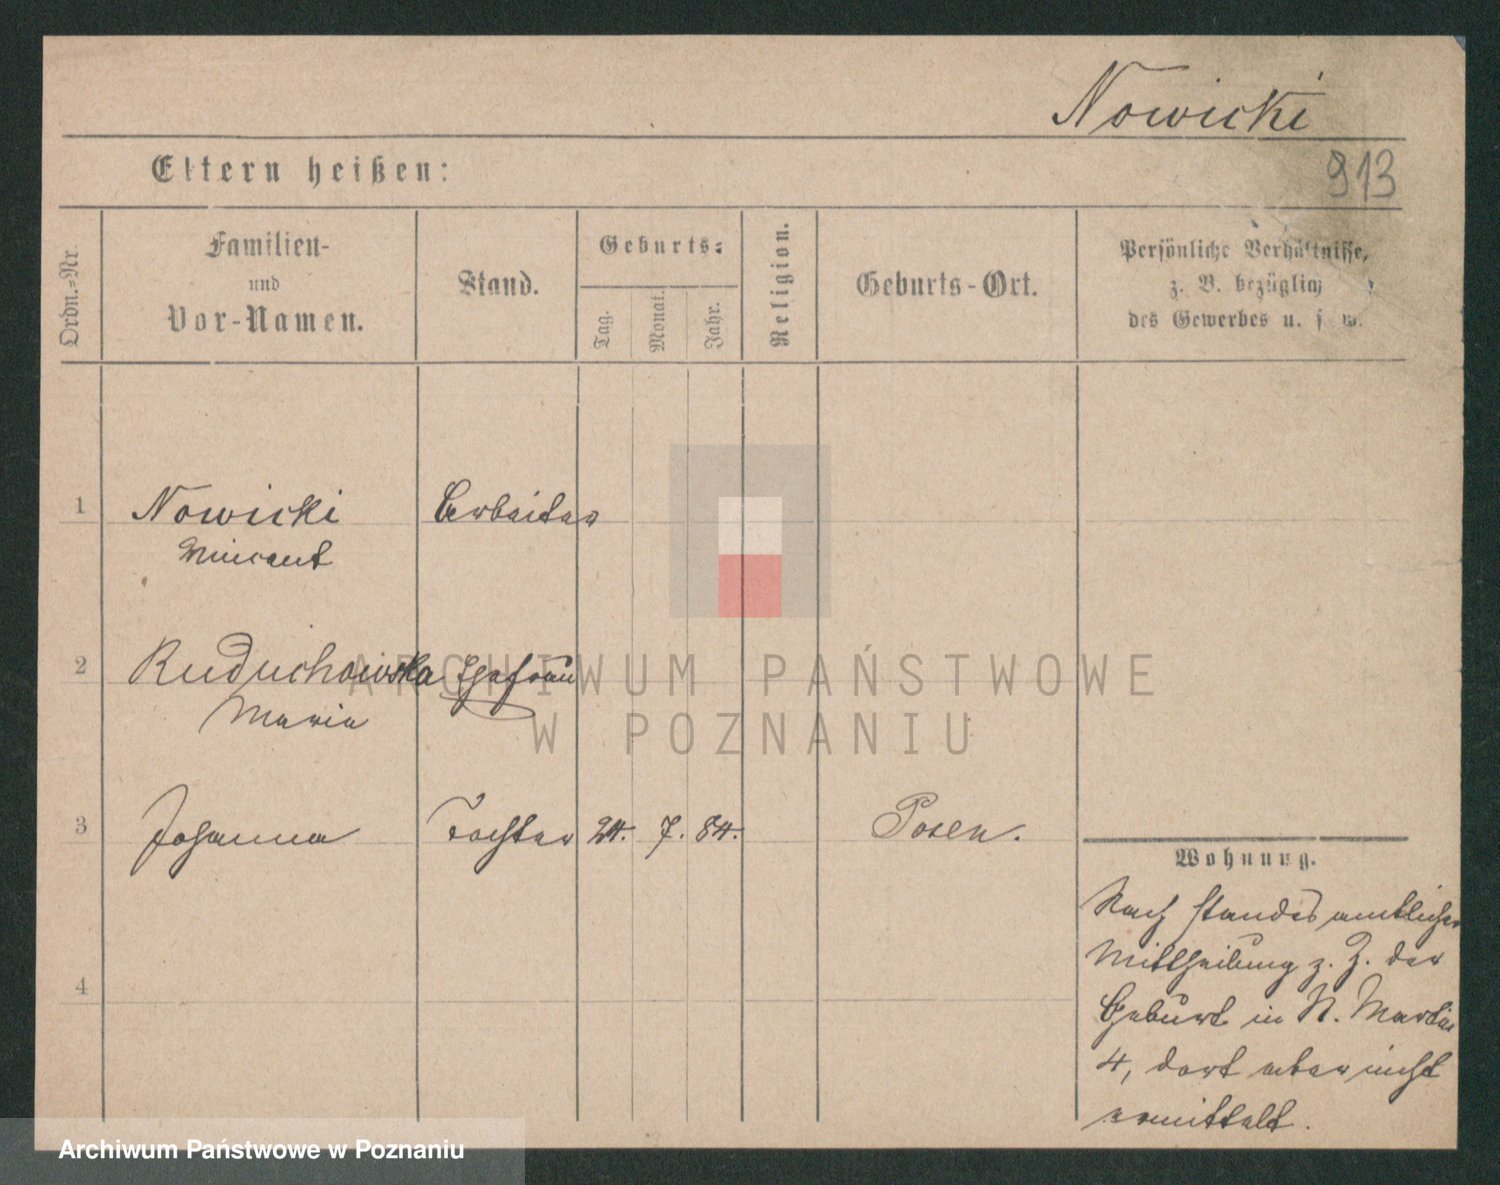 Nowicki
Eltern heißen:
913
Ordn.-Nr.
Familien-
und
Vor-Namen.
Stand.
Geburts-
Tag.
Monat.
Jahr.
Religion.
Geburts-Ort.
Persönliche Verhältnisse,
z. B. bezüglich
des Gewerbes u. s. w.
1 Nowicki Arbeiter
Vincent
2 Ruduchowska Ehefrau
Maria
3 Johanna Tochter 24. 7. 84. Posen.
Wohnung.
Nach standesamtlicher
Mittheilung z. Z. der
Geburt in St. Martin
4, dort aber nicht
ermittelt.
4
ARCHIWUM PAŃSTWOWE
W POZNANIU
Archiwum Państwowe w Poznaniu